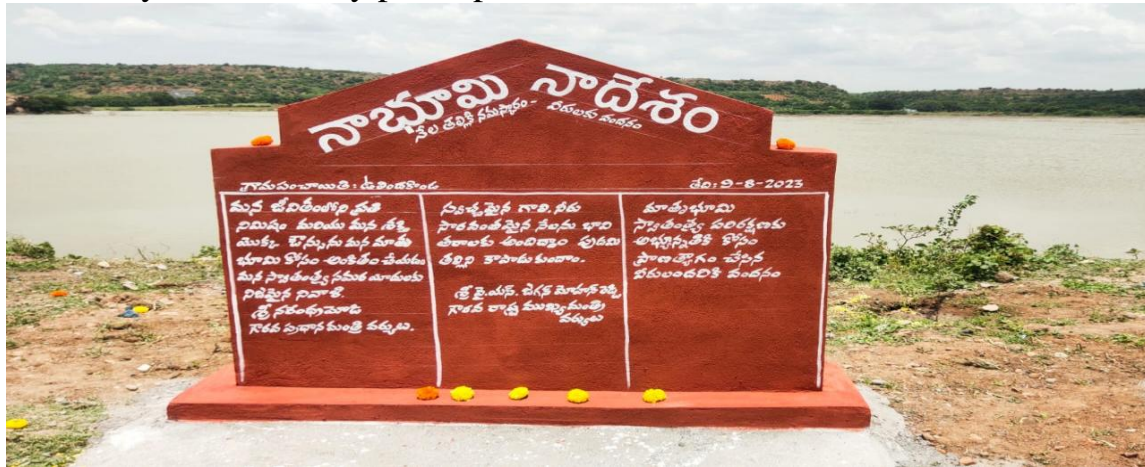 నాభూమి నాదేశం
నేల తల్లికి నమస్కారం - వీరులకు వందనం
గ్రామపంచాయితి: ఉలిందకొండ
తేది: 9-8-2023
మన జీవితంలోని ప్రతి
నిమిషం మరియు మన శక్తి
యొక్క ఔన్సును మన మాతృ
భూమి కోసం అంకితం చేయడం
మన స్వాతంత్ర్య సమర యోధులకు
నిజమైన నివాళి.
శ్రీ నరేంద్రమోడి
గౌరవ ప్రధాన మంత్రి వర్యులు.
స్వచ్ఛమైన గాలి, నీరు
సారవంతమైన నేలను భావి
తరాలకు అందిద్దాం పుడమి
తల్లిని కాపాడుకుందాం.
శ్రీ వై.యస్. జగన్ మోహన్ రెడ్డి
గౌరవ రాష్ట్ర ముఖ్యమంత్రి
వర్యులు
మాతృభూమి
స్వాతంత్ర్య పరిరక్షణకు
అభ్యున్నతికి కోసం
ప్రాణత్యాగం చేసిన
వీరులందరికి వందనం